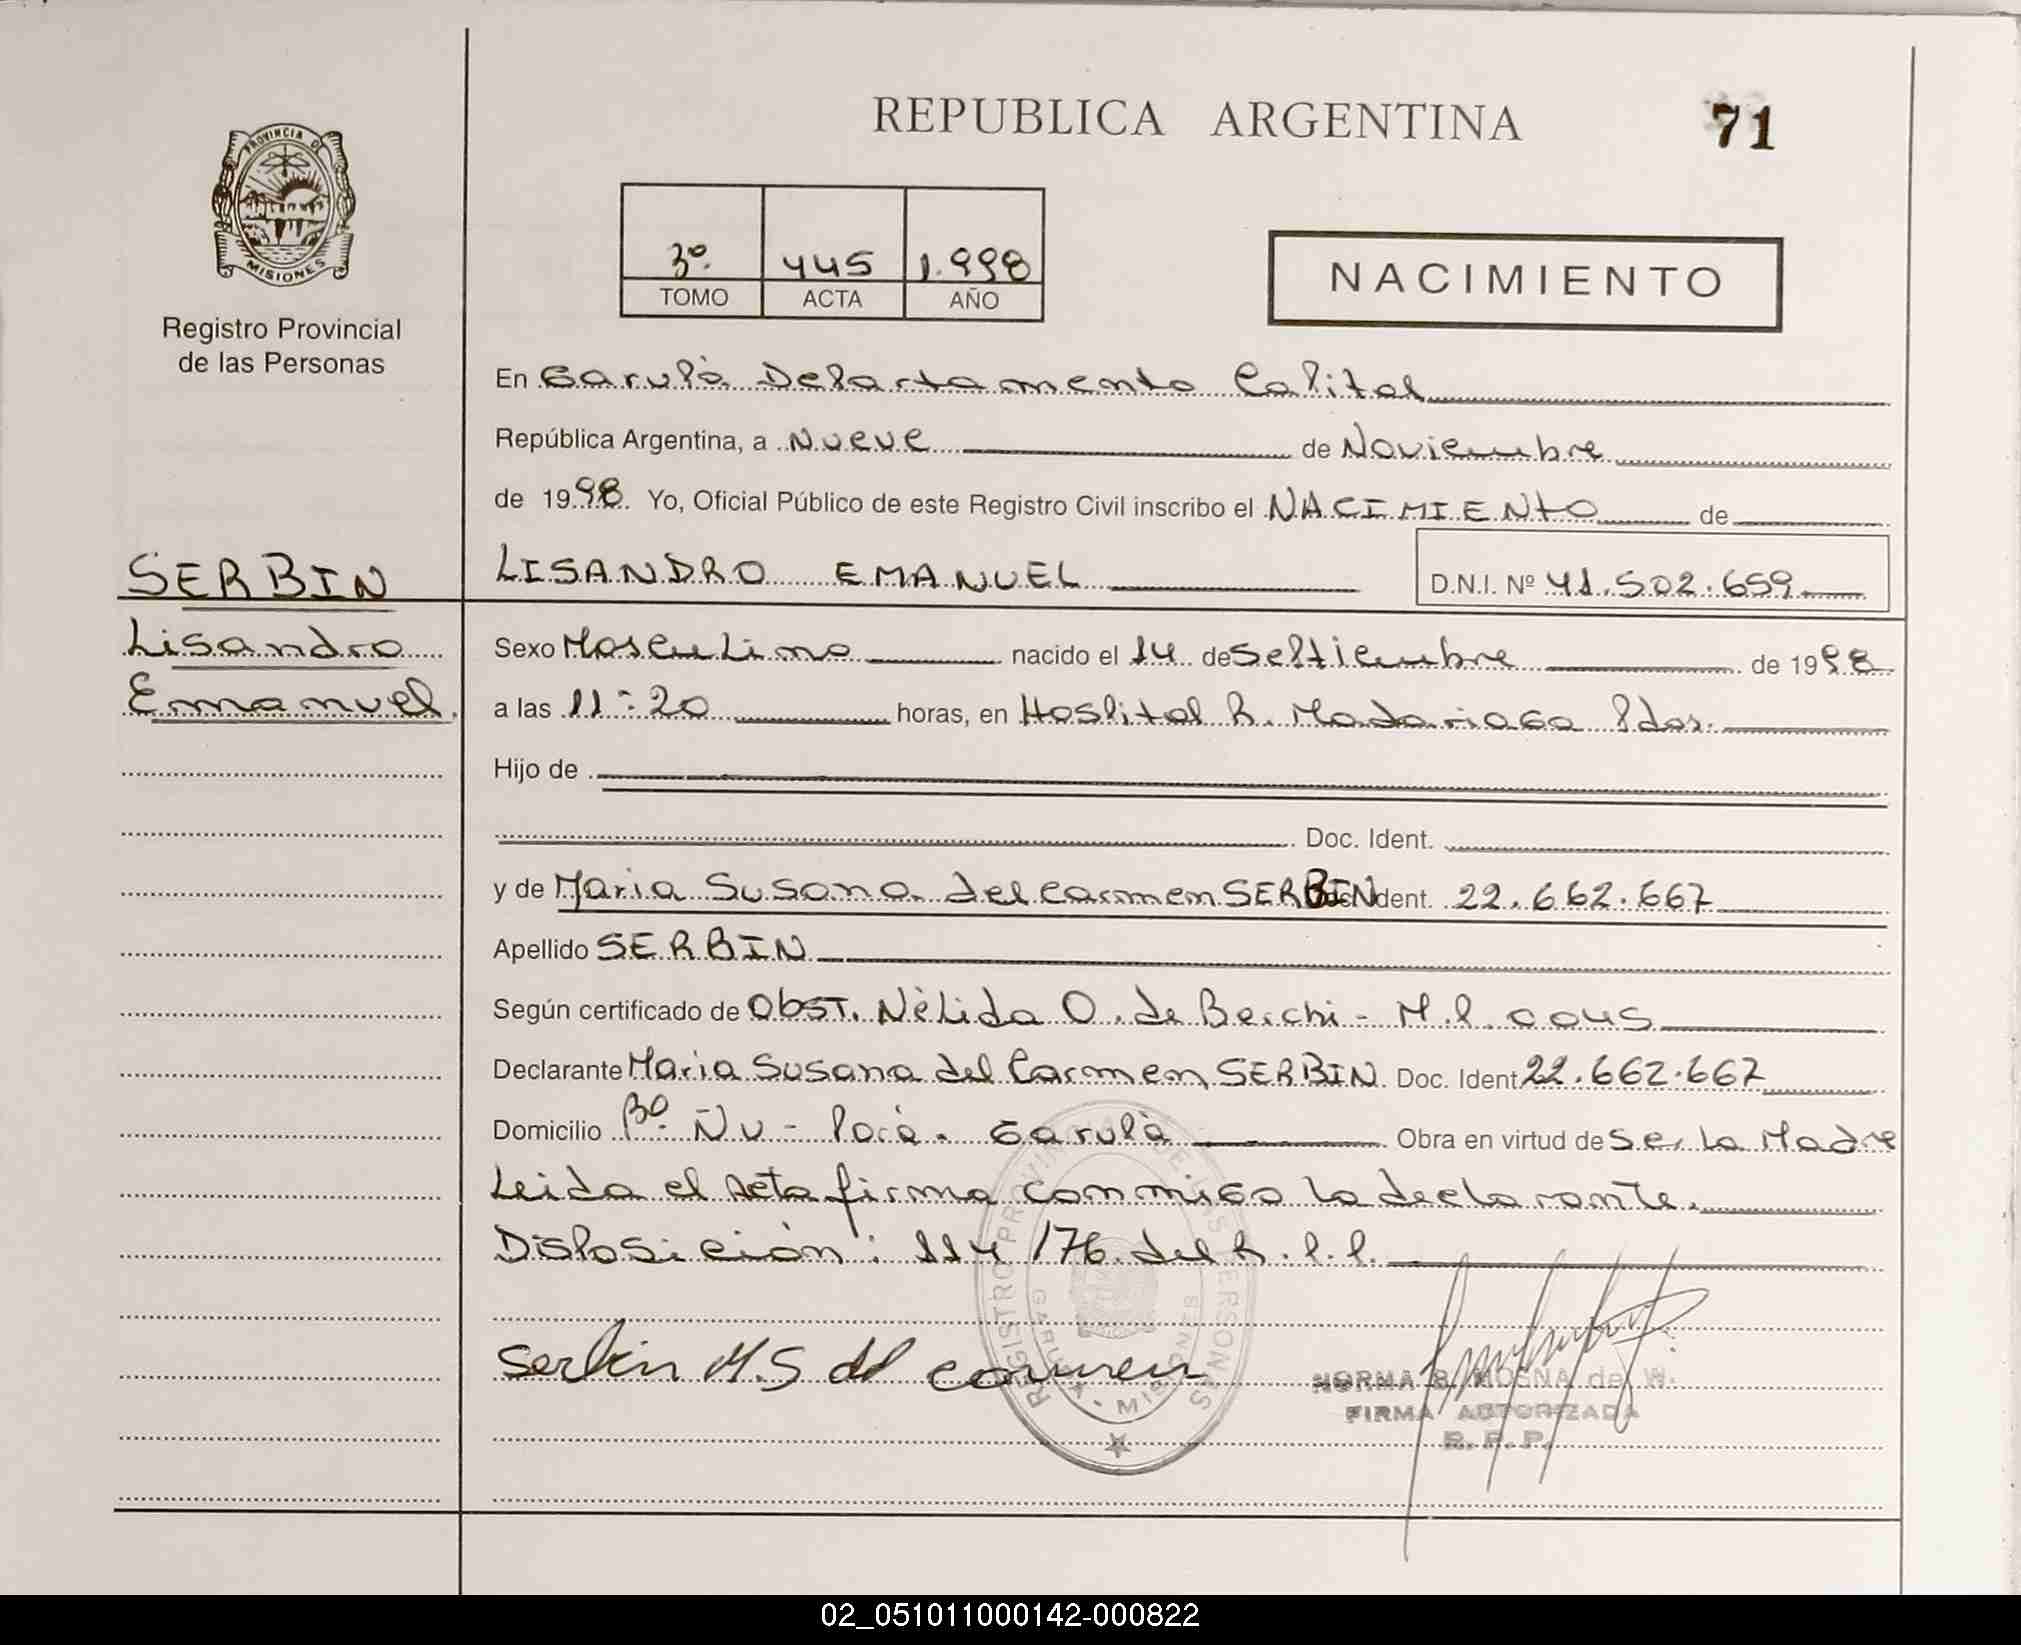 REPUBLICA ARGENTINA
71
PROVINCIA DE
MISIONES
Registro Provincial
de las Personas
3º. 445 1.998
TOMO ACTA AÑO
NACIMIENTO
En Garupá Departamento Capital
República Argentina, a Nueve de Noviembre
de 1998. Yo, Oficial Público de este Registro Civil inscribo el NACIMIENTO de
SERBIN
Lisandro
Emanuel.
LISANDRO EMANUEL D.N.I. Nº 41.502.659
Sexo Masculino nacido el 14 de Septiembre de 1998
a las 11:20 horas, en Hospital R. Madariaga Pdas.
Hijo de
Doc. Ident.
y de Maria Susana del Carmen SERBIN Ident. 22.662.667
Apellido SERBIN
Según certificado de Obst. Nélida O. de Berchi - M.P. 0045
Declarante Maria Susana del Carmen SERBIN. Doc. Ident 22.662.667
Domicilio Bº. Ñu - Porá. Garupá Obra en virtud de Ser La Madre
Leida el acta firma conmigo la declarante.
Disposición: 114/76 del R.P.P.
Serbin M.S del carmen
REGISTRO PROVINCIAL DE LAS PERSONAS
GARUPA
MISIONES
NORMA B. MOSNA de W.
FIRMA AUTORIZADA
R.P.P.
02_051011000142-000822